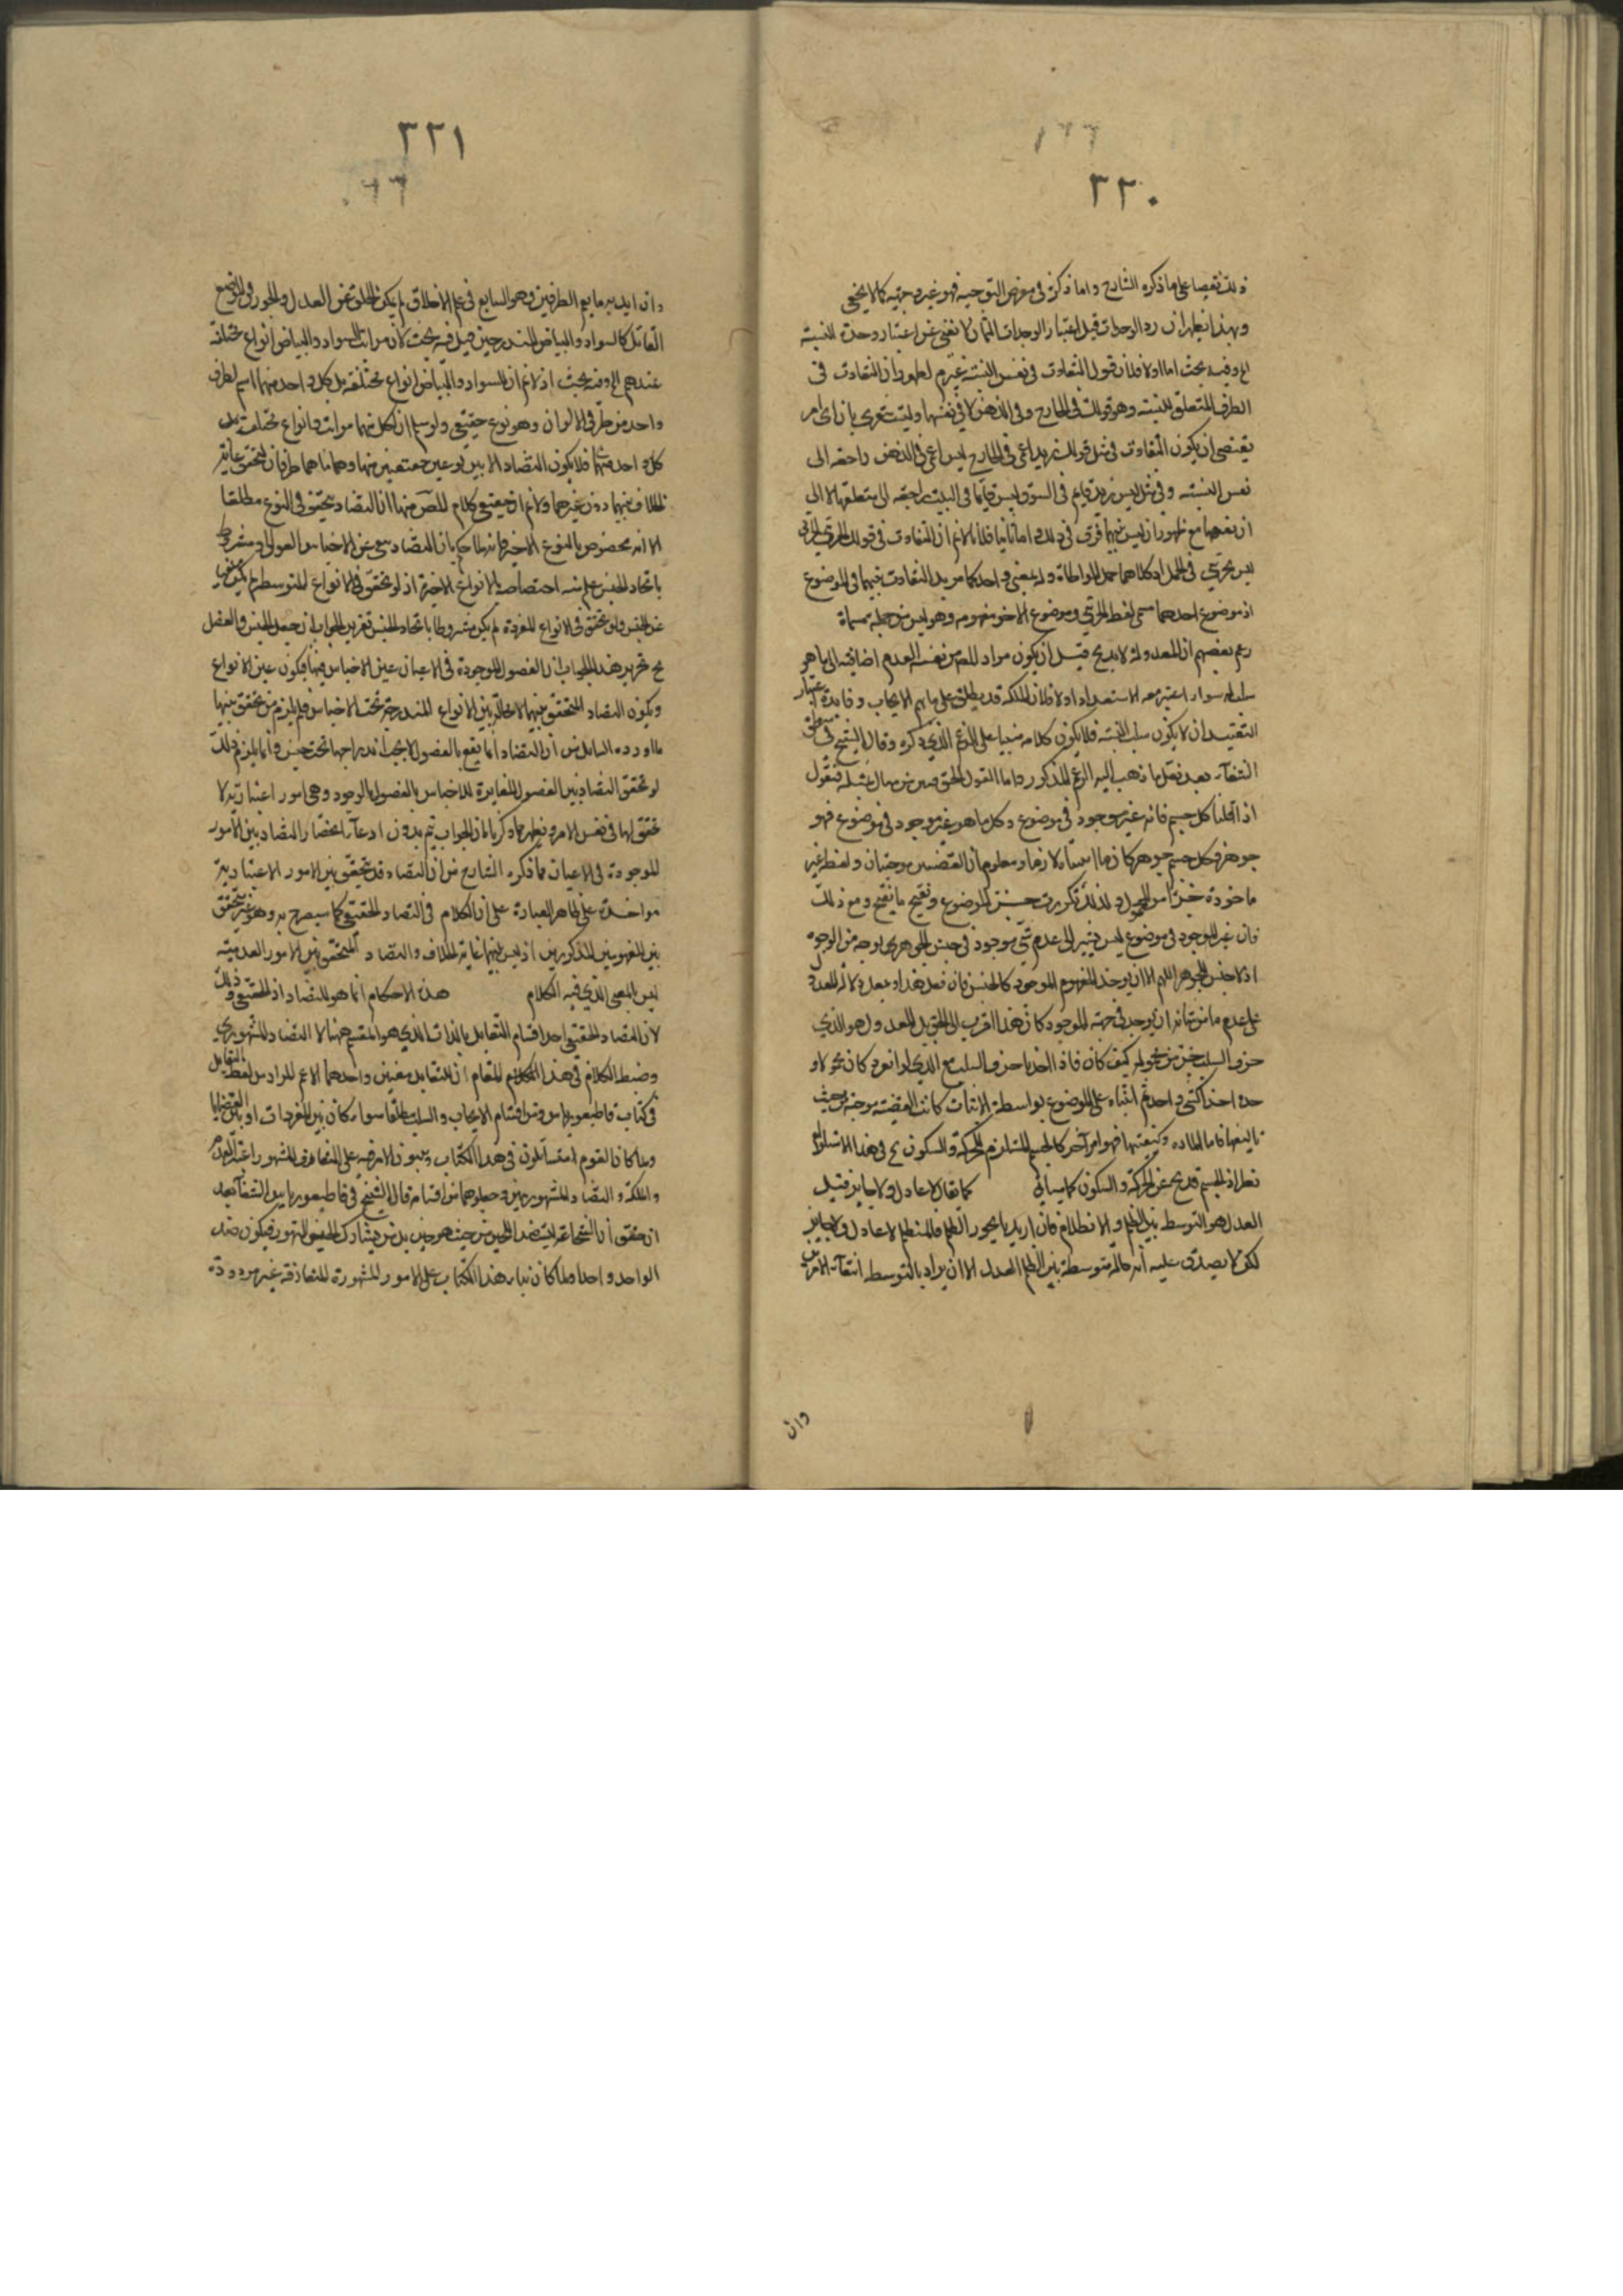 ٣٣٠
ذلك نقضا على ما ذكره الشارح واما ذكره فى معرض التوجيه فهو غير وجيه كما لا يخفى
وبهذا يظهر ان رد الوحدات قبل اعتبار الوحدات الثمان لا تغنى عن اعتبار وحدة النسبة
الخ وفيه بحث اما اولا فلان قوله التفاوت فى نفس النسبة غير م لظهور ان التفاوت فى
الطرف المتعلق للنسبة وهو قولك فى الخارج وفى الذهن لا فى نفسها وليت شعرى بان اى امر
يقتضى ان يكون التفاوت فى مثل قولك زيد اعمى فى الخارج ليس اعمى فى الذهن راجعه الى
نفس النسبة وفى مثل ليس زيد قايم فى السوق وليس قايما فى البيت راجعه الى متعلقها لا الى
ان نفسها مع ظهور ان ليس بينهما فرق فى ذلك واما ثانيا فلانا لانم ان التفاوت فى قولك الجزئى جزئى
ليس بجزئى فى الحمل اذ كلاهما حمل المواطاة وله معنى واحد كما مر بل التفاوت فيهما فى الموضوع
اذ موضوع احدهما مسمى لفظ الجزئى وموضوع الاخر مفهومه وهو ليس من جملة مسماه
زعم بعضهم ان المعدولة لا بد ح قيل ان يكون مراد المص من نفسه العدم اضافته الى ما هو
سلب له سواء اعتبر معه الاستعداد او لا فلان الملكة قد يطلق على ما يعم الايجاب وفايدة اعتبار
التقييد ان لا يكون سلب النسبة فلا يكون كلامه مبنيا على الزعم الذى ذكره وقال الشيخ فى منطق
الشفآء بعد نقل ما ذهب اليه الزعم المذكور واما القول الحق فبين من مثال نمثله فنقول
اذا قلنا كل جسم فانه غير موجود فى موضوع وكل ما هو غير موجود فى موضوع فهو
جوهر فكل جسم جوهر كان ما انتجناه لازما ومعلوم ان القضيتين موجبتان ولفظة غير
ماخوذة جزءا من المحمول ولذلك تكررت حسن الموضوع ونتج ما نتج ومع ذلك
فان غير الموجود فى موضوع ليس يشير الى عدم شئ موجود فى جنس الجوهر بوجه من الوجوه
اذ لا جنس للجوهر اللهم الا ان يوخذ المفهوم الموجود كالجنس فان فعل هذا وبعد دلاله المعدول
على عدم ما من شانه ان يوجد فى جهة الموجود كان هذا اقرب الى الحق بل المعدول هو الذى
حرف السلب جزء من محموله كيف كان فاذا اخذ با حرف السلب مع الذى لو انفرد كان محمولا و
حده اخذا كشئ واحد ثم اثبتاه على الموضوع بواسطة الاثبات كانت القضية موجبة بحيث
تاليفها فاما المادة وكيفيتها فهو امر آخر كالجسم المستلزم للحركة والسكون ح فى هذا الاستلزام
نظر اذ الجسم قد يخ عن الحركة والسكون كما سياتى كما يقال لا عادل ولا جاير قيل
العدل هو التوسط بين الظلم والانظلام فان اريد بالجور الظلم فالمنظلم لا عادل ولا جاير
لكن لا يصدق عليه انه حالة متوسطة بين الظلم العدل الا ان يراد بالتوسط انتفآء الامرين
وان
٣٣١
وان اريد به ما يعم الطرفين وهو السايع فى علم الاخلاق لم يكن الخلو عن العدل والجور فى الموضع
القابل كالسواد والبياض المندرجين قيل فيه بحث لان مراتب السواد والبياض انواع مختلفة
عندهم الخ وفيه بحث اذ لانم ان السواد والبياض انواع مختلفة بل كل واحد منهما اسم لطرف
واحد من طرفى الالوان وهو نوع حقيقى ولو سلم ان لكل منهما مراتب وانواع مختلفة بل
كل واحد منهما فلا يكون التضاد الا بين نوعين معينين منها وهما ما هما طرفان لتحقق غاية
الخلاف بينهما دون غيرهما ولانم ان مقتضى كلام المص منها ان التضاد يتحقق فى النوع مطلقا
الا انه مخصوص بالنوع الاخير فانه لما حكم بان التضاد منفى عن الاجناس العوالى ومشروط
باتحاد الجنس علم منه اختصاصه بالانواع الاخيرة اذ لو تحقق فى الانواع المتوسطة لم يكن منفى
عن الجنس ولو تحقق فى الانواع المفردة لم يكن مشروطا باتحاد الجنس تقرير الجواب ان جعل الجنس والفصل
ح تحرير هذا الجواب ان الفصول الموجودة فى الاعيان عين الاجناس فيها فيكون عين الانواع
ويكون التضاد المتحقق بينها لا محالة بين الانواع المندرجة تحت الاجناس فلم يلزم من تحقق بينها
ما اورده السايل من ان التضاد انما يقع بالفصول لا يجب اندراجها تحت جنس وانما يلزم ذلك
لو تحقق التضاد بين الفصول المغايرة للاجناس بالفصول بالوجود وهى امور اعتبارية لا
تحقق لها فى نفس الامر ويظهر مما ذكرنا ان الجواب يتم بدون ادعآء انحصار التضاد بين الامور
الموجودة فى الاعيان فما ذكره الشارح من ان التضاد قد يتحقق بين الامور الاعتبارية
مواخذة على ظاهر العبارة على ان الكلام فى التضاد الحقيقى كما سيصرح به وهو غير متحقق
بين المفهومين المذكورين اذ ليس بينهما غاية الخلاف والتضاد المتحقق بين الامور العدمية
ليس بالمعنى الذى فيه الكلام هذه الاحكام انما هو للتضاد اذ الحقيقى وذلك
لان التضاد الحقيقى احد اقسام التقابل بالذات الذى هو المقسم ههنا لا التضاد المشهورى
وضبط الكلام فى هذا المقام ان للتقابل معنيين واحدهما الاعم المراد من لفظ التقابل
فى كتاب قاطيغورياس ومن اقسام الايجاب والسلب مطلقا سواء كان بين المفردات او بين القضايا
ولما كان القوم متساهلون فى هذا الكتاب ويبنون الامر فيه على المتعارف المشهور اعتبر العدم
والملكة والتضاد المشهوريين وجعلوهما من اقسامه قال الشيخ فى قاطيغورياس الشفآء بعد
ان حقق ان الشجاعة ليست ضد الجبن من حيث هو جبن بل من حيث يشارك الجبن التهور فيكون ضد
الواحد واحدا ولما كان بناء هذا الكتاب على الامور المشهورة المتعارفة غير مردودة